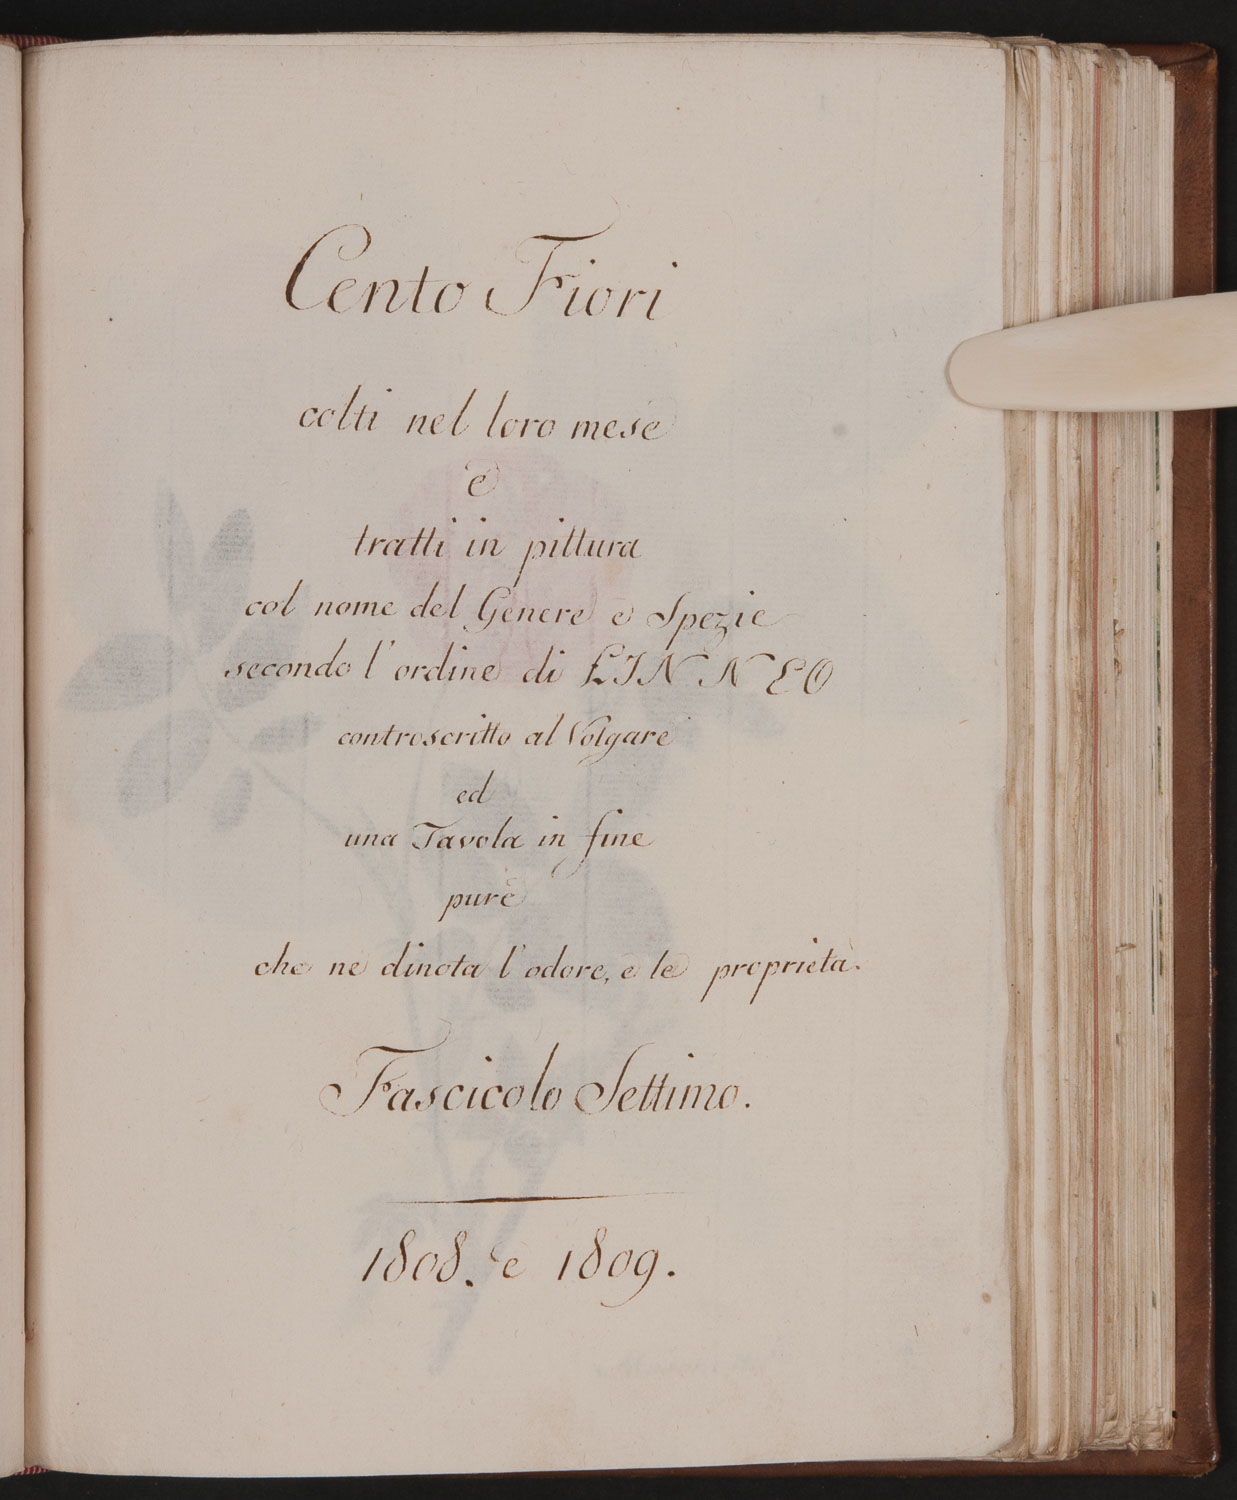 Cento Fiori
colti nel loro mese
e
tratti in pittura
col nome del Genere e Spezie
secondo l'ordine di LINNEO
controscritto al Volgare
ed
una Tavola in fine
pure
che ne dinota l'odore, e le proprietà.
Fascicolo Settimo.
1808. e 1809.